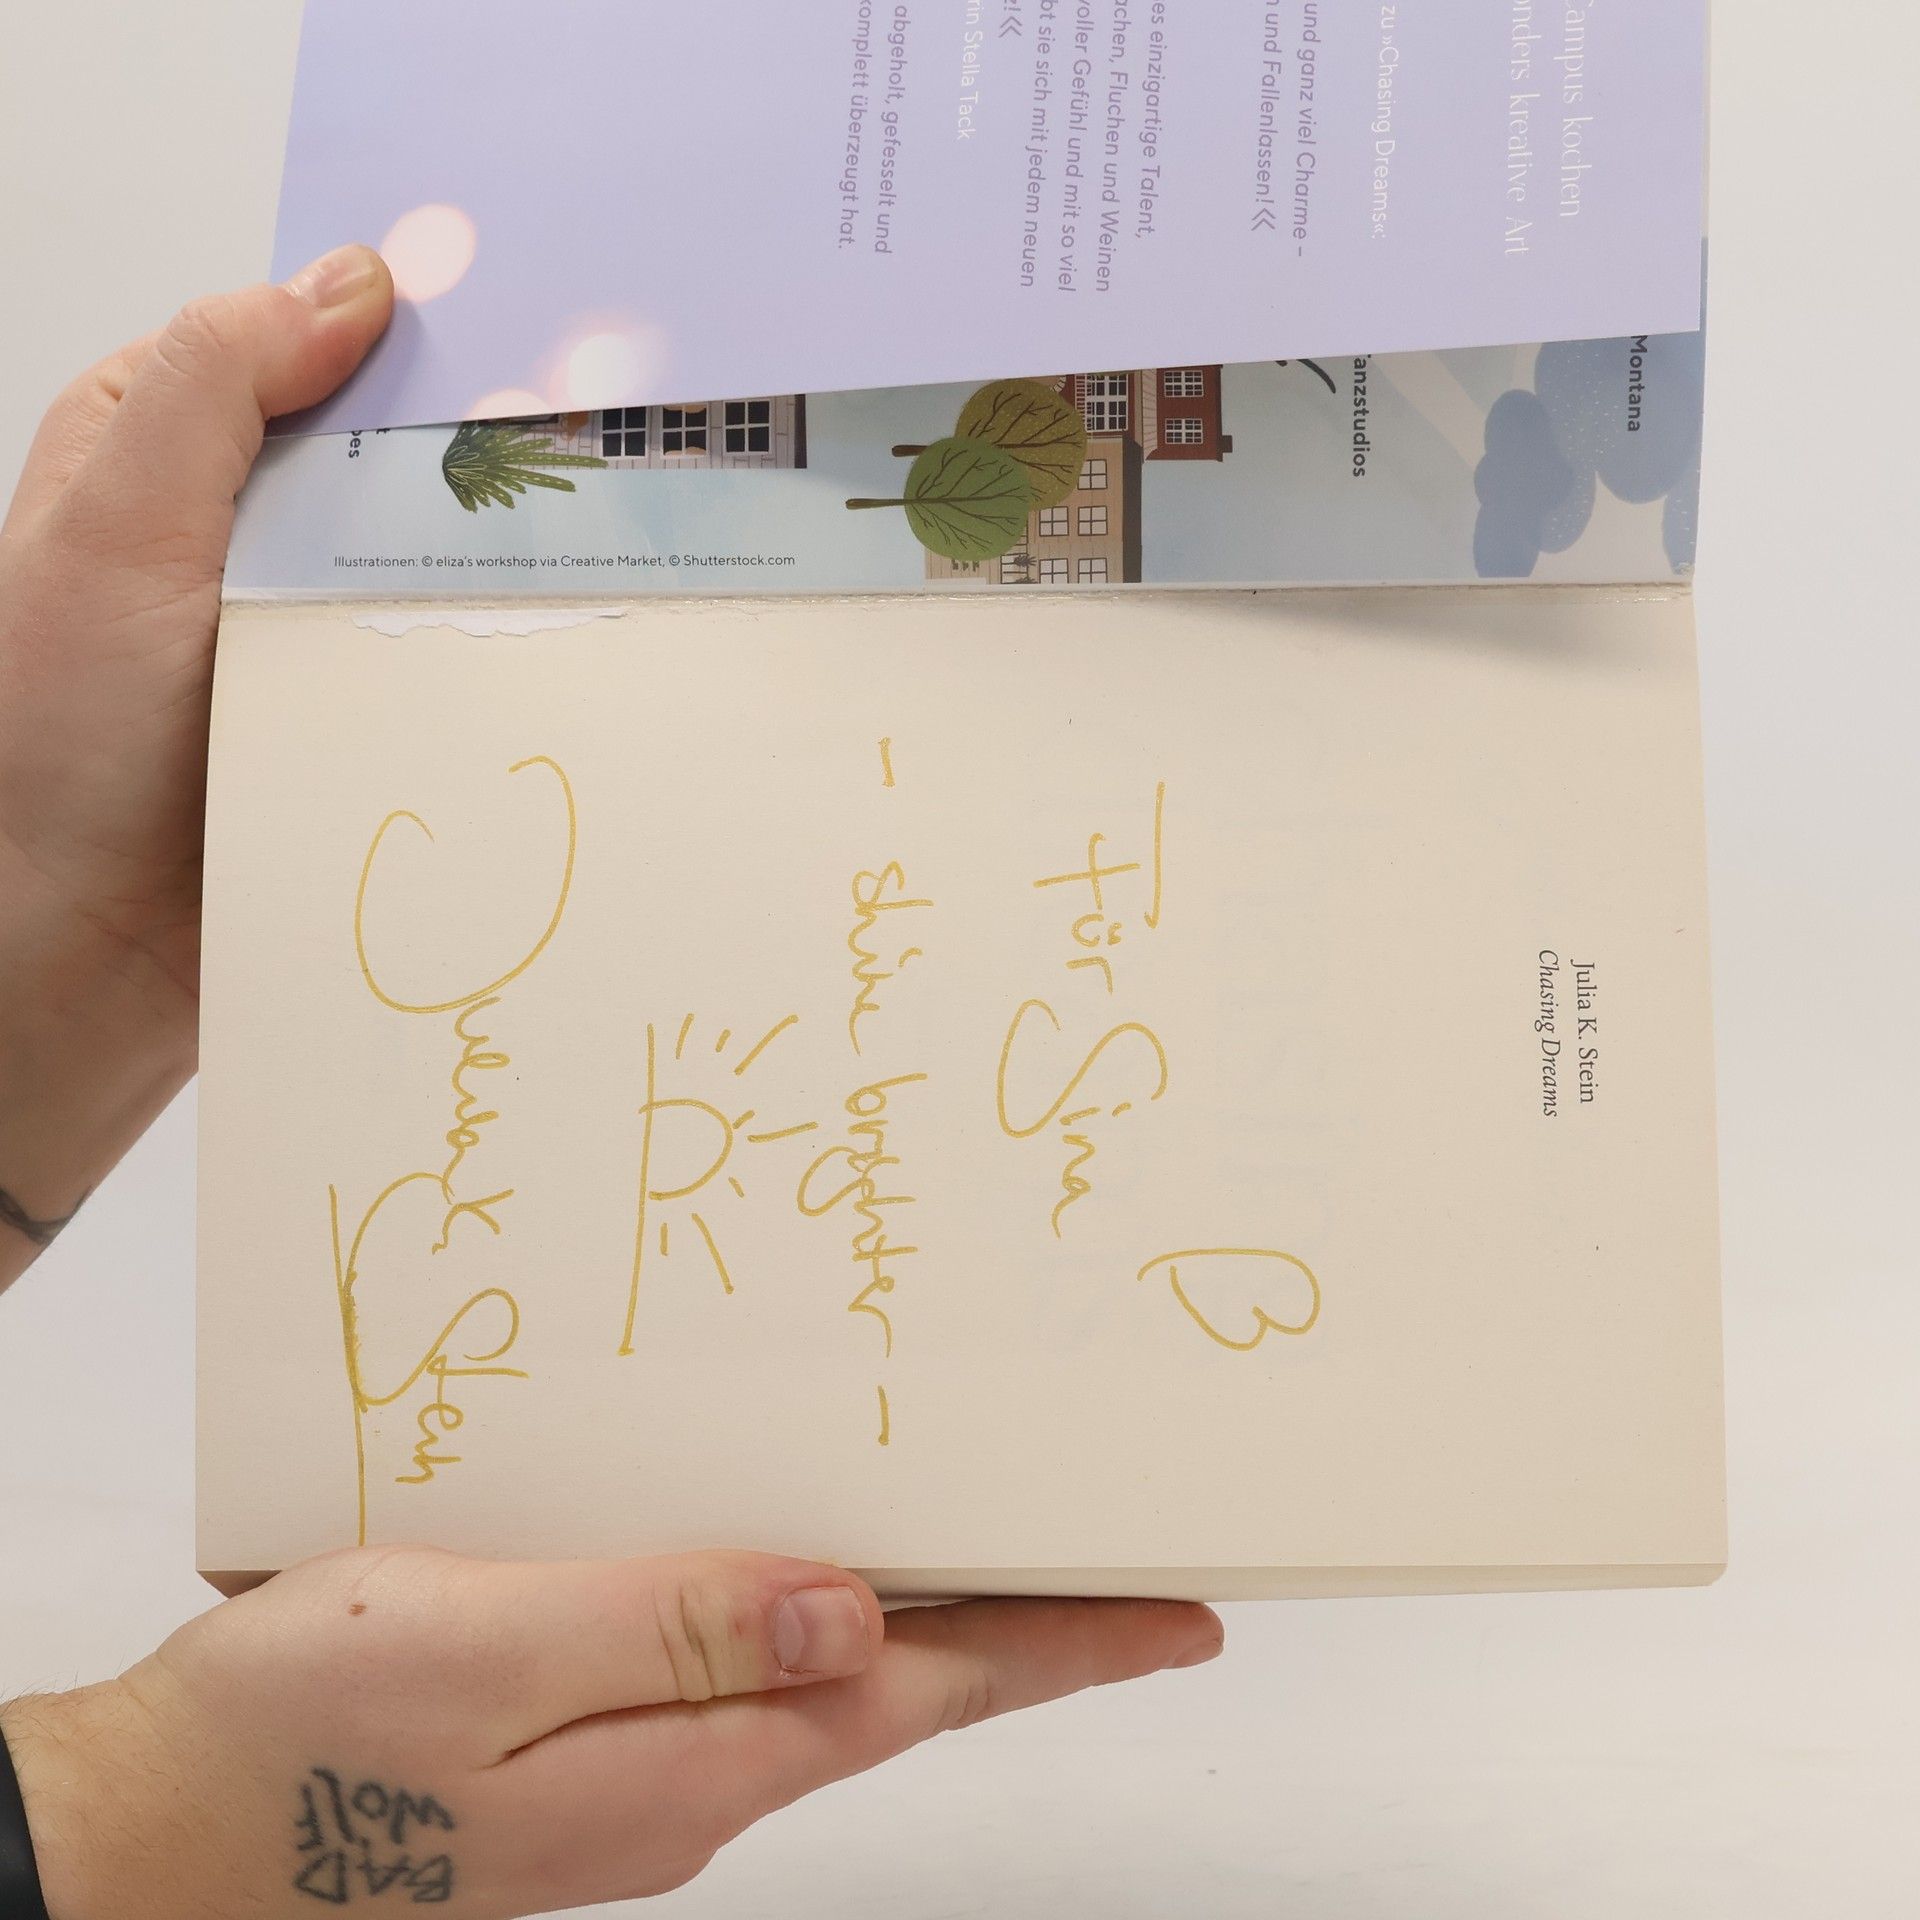 Campus kochen
onders kreative Art
zu »Chasing Dreams«:
und ganz viel Charme –
und Fallenlassen! «
es einzigartige Talent,
achen, Fluchen und Weinen
voller Gefühl und mit so viel
bt sie sich mit jedem neuen
e! «
rin Stella Tack
abgeholt, gefesselt und
komplett überzeugt hat.
Montana
anzstudios
Illustrationen: © eliza's workshop via Creative Market, © Shutterstock.com
Julia K. Stein
Chasing Dreams
Für Sina
– shine brighter –
Julia K. Stein
BAD
WOLF